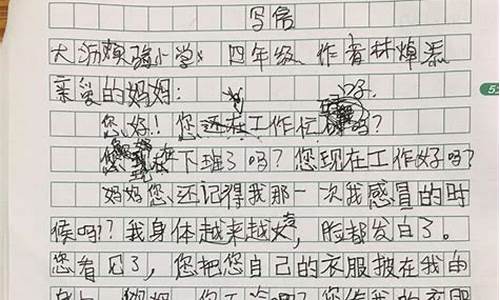 写信
大沥实验小学 四年级 作者林焯
亲爱的妈妈:
您好!您还在工作忙吗?
您现在下班了吗?您现在工作好吗?
妈妈您还记得我那一次我感冒的时
候吗?我身体越来越,脸都发白了。
您看见了,您把您自己的衣服披在我的
身上,妈妈,您不冷吗?您给我的衣服